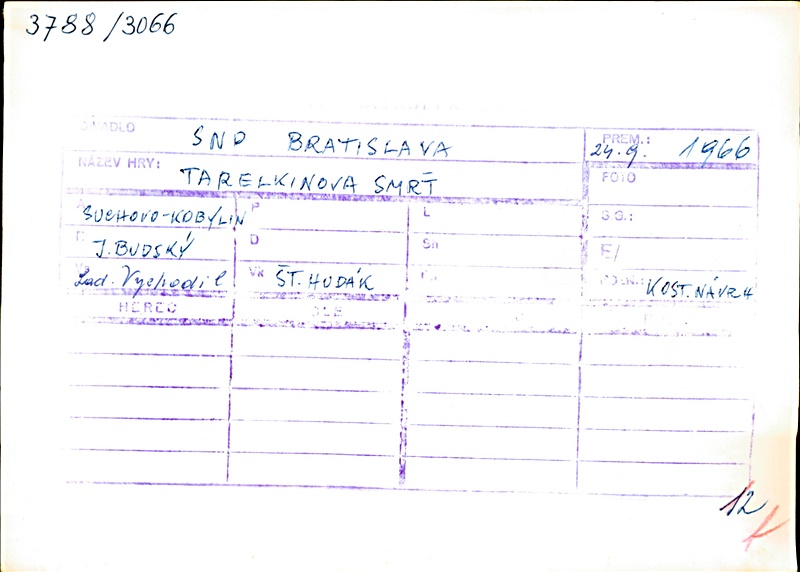 3788/3066
DIVADLO SND BRATISLAVA PREM.: 24.9. 1966
NÁZEV HRY: TARELKINOVA SMRŤ FOTO
A SUCHOVO-KOBYLIN P L S.G.:
J. BUDSKÝ D Sn E/
Lad. Vychodil Vk ŠT. HUDÁK KOST. NÁVRH
HEREC
12